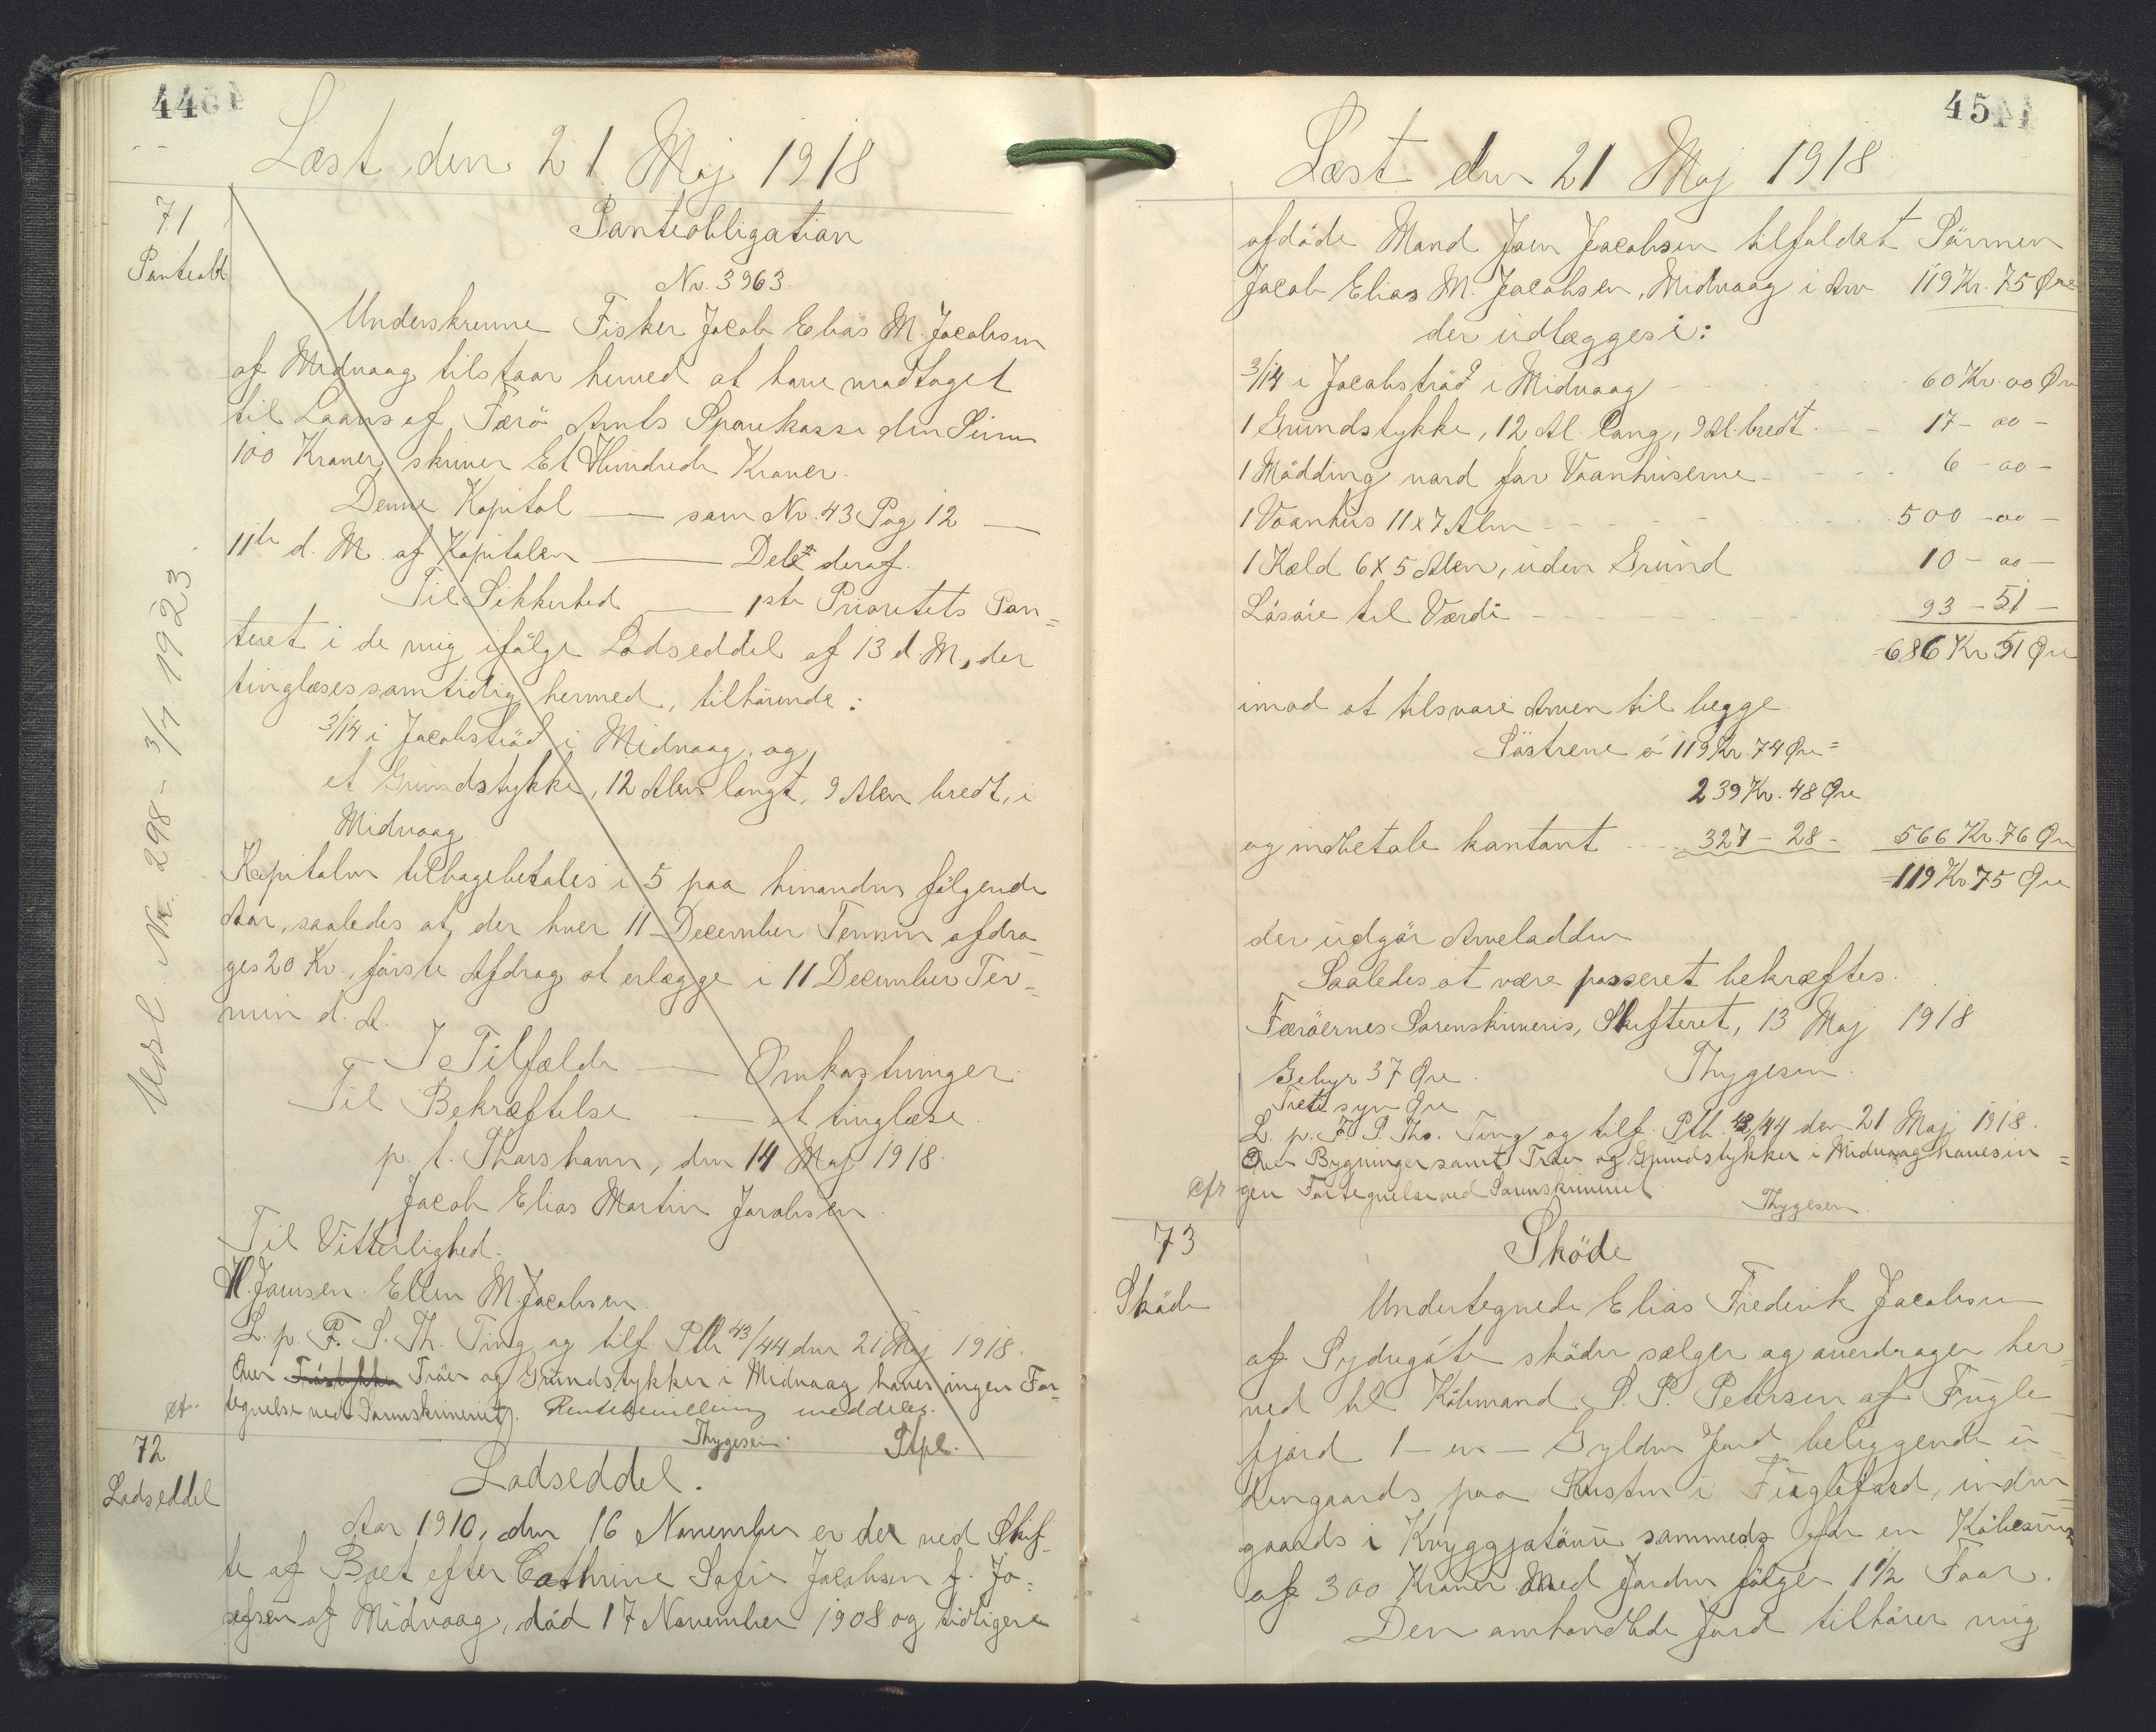 44
Læst den 21 Maj 1918
71
Panteobl.
Panteobligation
No. 3963.
Underskrevne Fisker Jacob Elias M. Jacobsen
af Midvaag tilstaar herved at have modtaget
til Laans af Færö Amts Sparekasse den Sum
100 Kroner, skriver Et Hundrede Kroner.
Denne Kapital — som No. 43 Pag 12 —
11te d. M. af Kapitalen — Delt deraf.
Til Sikkerhed — 1ste Prioritets Pan=
teret i de mig ifölge Lodseddel af 13 d. M., der
tinglæses samtidig hermed, tilhörende:
3/14 i Jacobströd i Midvaag, og
et Grundstykke, 12 Alen langt, 9 Alen bredt, i
Midvaag.
Kapitalen tilbagebetales i 5 paa hinanden fölgende
Aar, saaledes at der hver 11 December Termin afdra-
ges 20 Kr., förste Afdrag at erlægge i 11 December Ter=
min d. A.
I Tilfælde — Omkostninger.
Til Bekræftelse — at tinglæse.
p. t. Thorshavn, den 14 Maj 1918.
Jacob Elias Martin Jacobsen.
Til Vitterlighed:
H. Joensen. Ellen M. Jacobsen.
L. p. F. S. Th. Ting og tilf. Ptb 43/44 den 21 Maj 1918.
Over Tröstykker Tröer og Grundstykker i Midvaag haves ingen For-
tegnelse ved Sorenskriveriet. Rentebevilling meddeles.
cf.
Thygesen.
Stpl.
Udsl. No. 298 - 3/7 1923.
72
Lodseddel
Lodseddel.
Aar 1910, den 16 November er der ved Skif-
te af Boet efter Cathrine Sofie Jacobsen f. Jo=
sefsen af Midvaag, död 17 November 1908 og tidligere
45
Læst den 21 Maj 1918
afdöde Mand Joen Jacobsen tilfaldet Sönnen
Jacob Elias M. Jacobsen, Midvaag i Arv 119 Kr. 75 Øre
der udlægges i:
3/14 i Jacobströd i Midvaag - 60 Kr. 00 Øre
1 Grundstykke, 12 Al. lang, 9 Al. bredt. - 17 - 00 -
1 Mödding nord for Vaanhuserne - 6 - 00 -
1 Vaanhus 11 x 7 Alen - 500 - 00 -
1 Kæld 6 x 5 Alen, uden Grund 10 - 00 -
Lösöre til Værdi - 93 - 51 -
=686 Kr. 51 Øre
imod at tilsvare Arven til begge
Söstrene á 119 Kr. 74 Øre =
239 Kr. 48 Øre
og indbetale kontant - 327 - 28 - 566 Kr. 76 Øre
=119 Kr. 75 Øre
der udgör Arvelodden
Saaledes at være passeret bekræftes.
Færöernes Sorenskriveri, Skifteret, 13 Maj 1918
Gebyr 37 Øre. Thygesen.
Treti syv Øre
L. p. F. S. Th. Ting og tilf. Ptb. 43/44 den 21 Maj 1918.
Over Bygninger samt Tröer og Grundstykker i Midvaag haves in=
cfr
gen Fortegnelse ved Sorenskriveriet
Thygesen.
73
Sköde
Sköde
Undertegnede Elias Frederik Jacobsen
af Sydregöte sköder sælger og overdrager her=
ved til Köbmand S. P. Petersen af Fugle
fjord 1 - en - Gylden Jord beliggende u-
dengaards paa Rustin i Fuglefjord, inden=
gaards i sammesteds for en Köbesum
af 300 Kroner Med Jorden fölger 1 1/2 Faar.
Den omhandlede Jord tilhörer mig